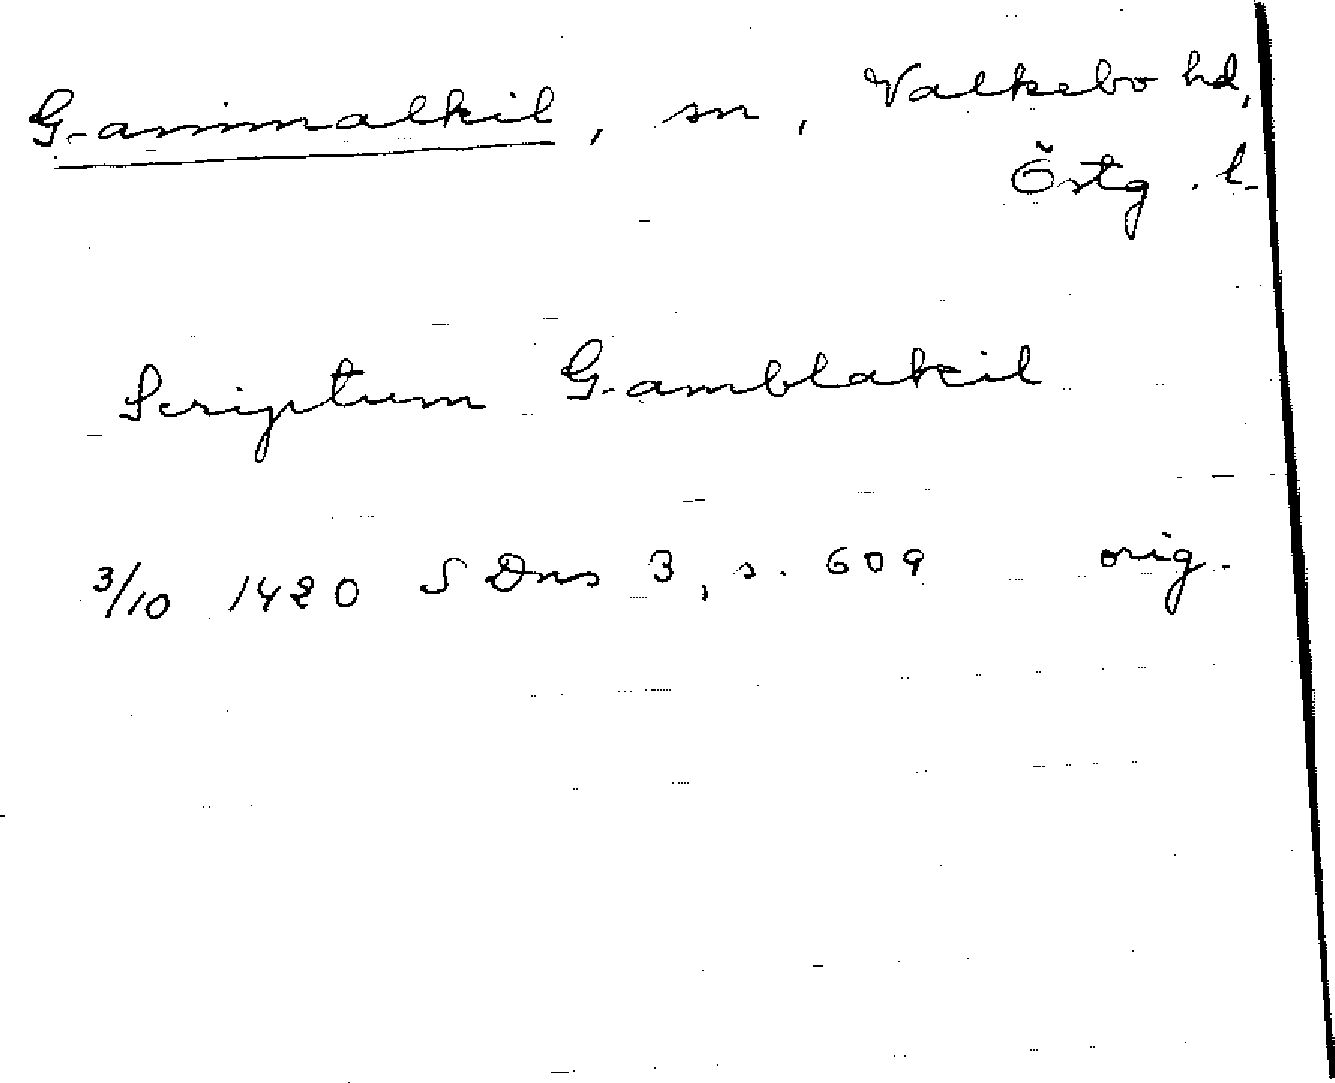 Gammalkil, sn, Valkebo hd,
Östg. l.
Scriptum Gamblakil
3/10 1420 SDns 3, s. 609 orig.